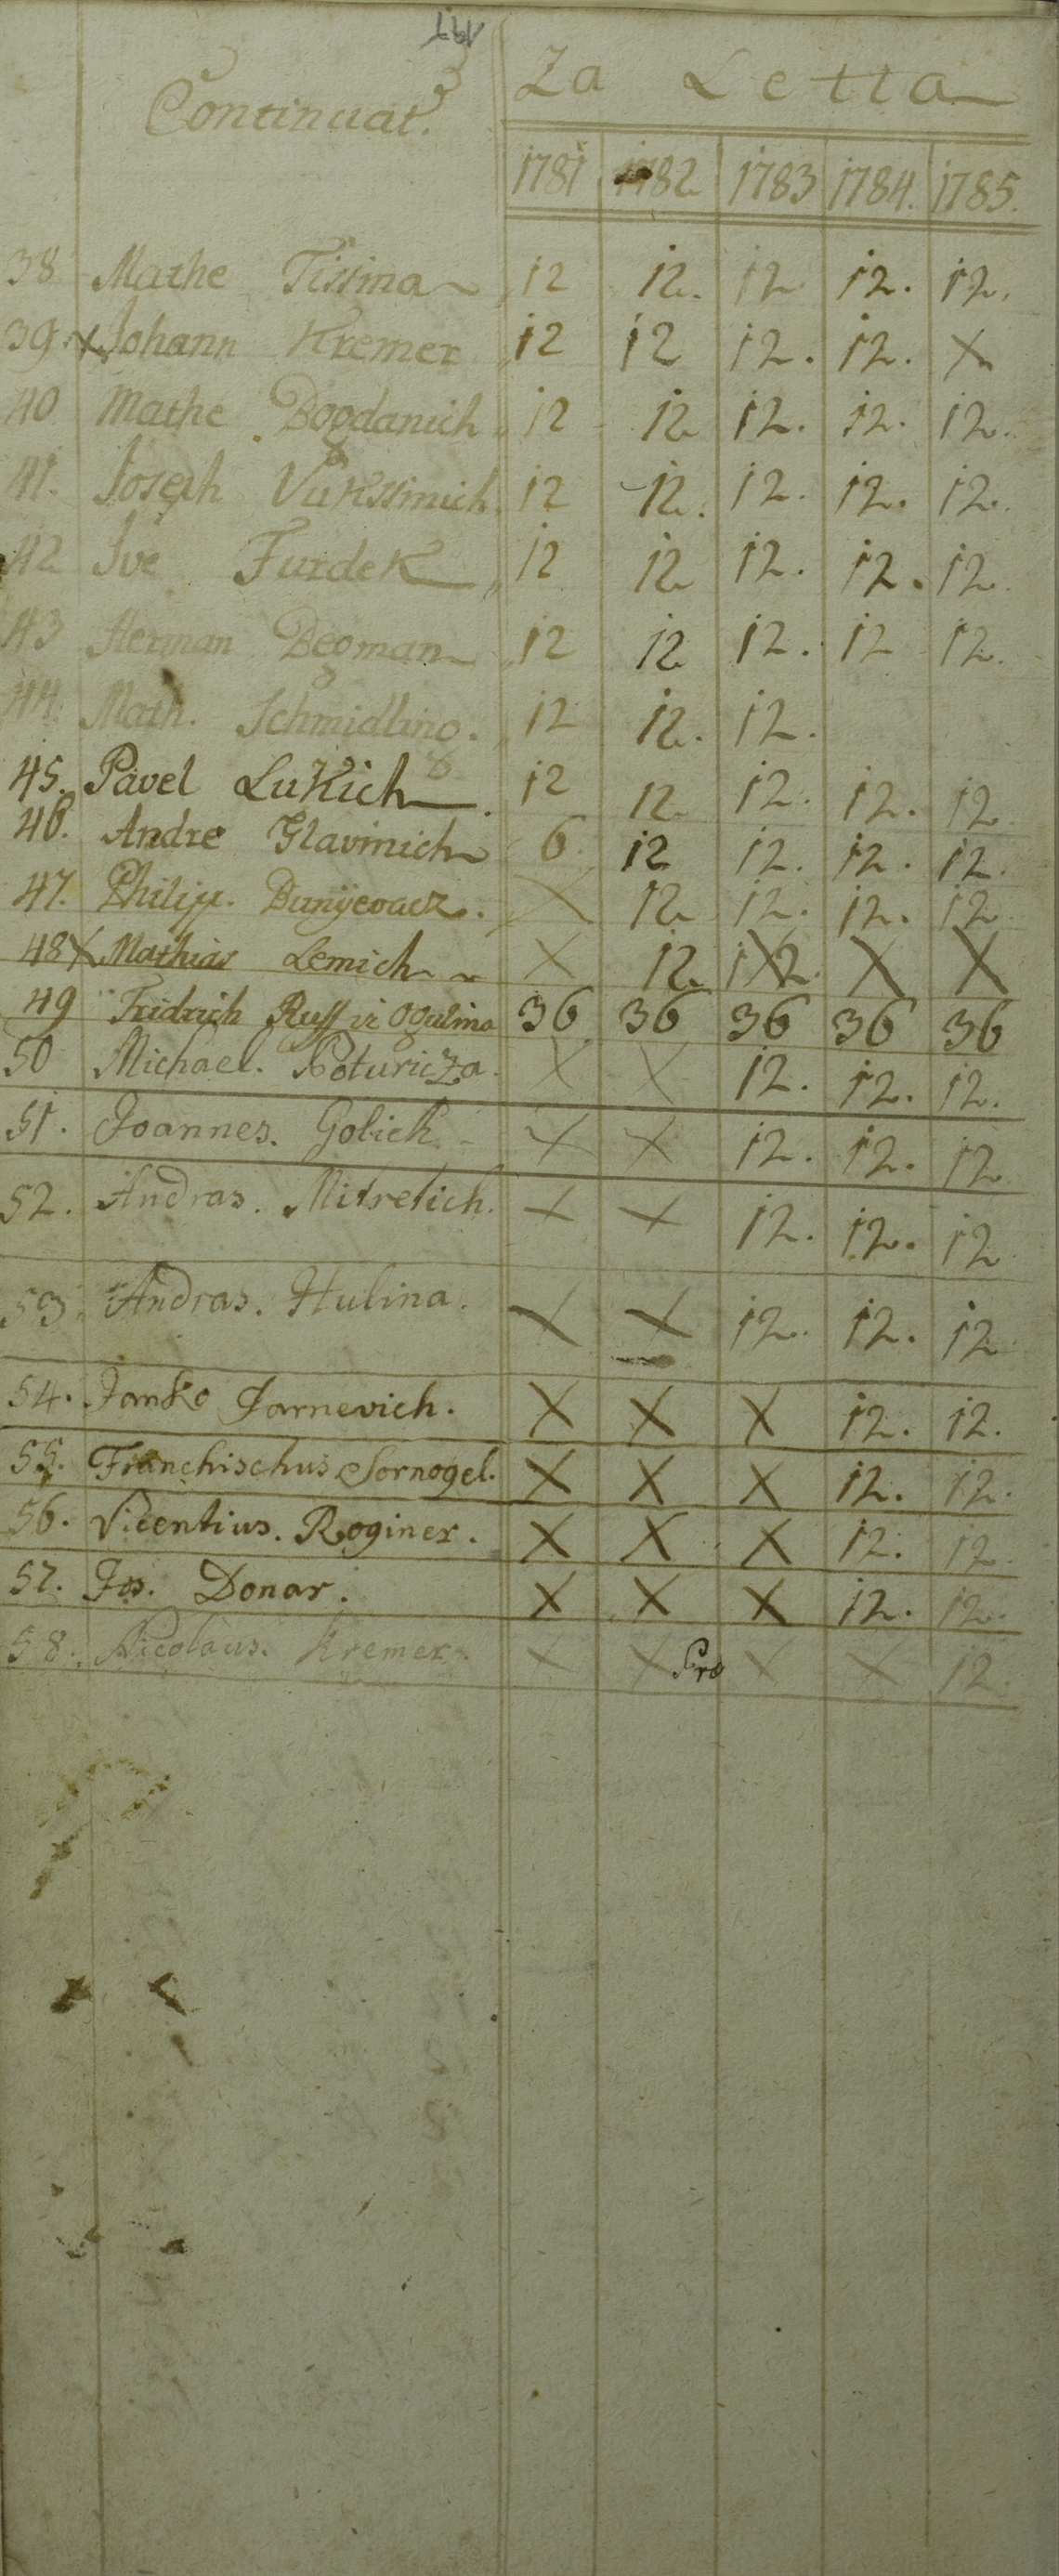 Continuat. Za Letta
1781 1782 1783 1784. 1785.
38 Mathe Tissina 12 12. 12 12. 12.
39. X Johann Kremer 12 12 12. 12. X
40 Mathe Bogdanich 12 12. 12. 12. 12.
41. Joseph Vukssinich 12 12. 12. 12. 12.
42 Ive Furdek 12 12 12. 12. 12.
43 Herman Degman 12 12 12. 12 12.
44. Math. Schmidling. 12 12. 12.
45. Pavel Lukich 12 12. 12. 12. 12.
46. Andre Glavinich 6. 12 12. 12. 12.
47. Philip. Bunÿevacz. X 12. 12. 12. 12.
48 X Mathias Lemich X 12. 12. X X
49 Fridrich Russ iz Ogulina 36 36 36 36 36
50 Michael. Poturicza. X X 12. 12. 12.
51. Joannes. Golich X X 12. 12. 12.
52. Andras. Mitretich. X X 12. 12. 12
53. Andras. Hulina. X X 12. 12. 12
54. Janko Jarnevich. X X X 12. 12.
55. Franchischus Sornogel. X X X 12. 12.
56. Vicentius. Roginer. X X X 12. 12.
57. Jos. Donar. X X X 12. 12.
58. Nicolaus. Kremer. X X Pro X X 12.